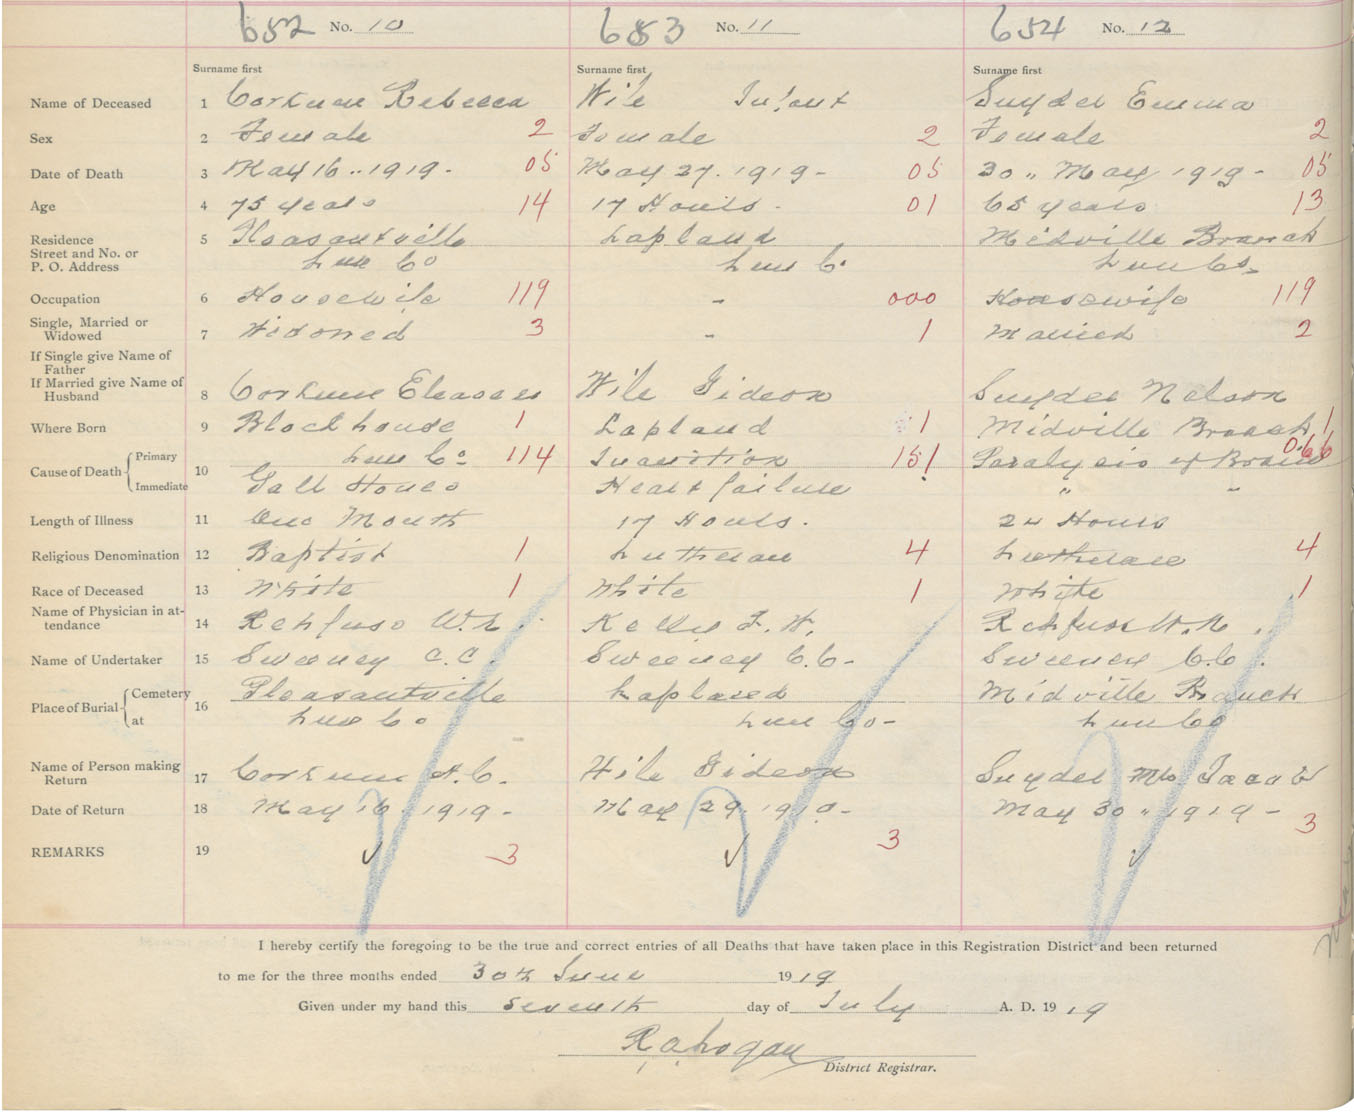 652 No. 10 683 No. 11 654 No. 12
Surname first Surname first Surname first
Name of Deceased 1 Corkum Rebecca Wile Infant Snyder Emma
Sex 2 Female 2 Female 2 Female 2
Date of Death 3 May 16 .. 1919 - 05 May 27 . 1919 - 05 30 " May 1919 - 05
Age 4 75 years 14 17 Hours - 01 65 years 13
Residence 5 Pleasantville Lapland Midville Branch
Street and No. or
P. O. Address Lun Co Lun Co. Lun Co.
Occupation 6 Housewife 119 - 000 Housewife 119
Single, Married or
Widowed 7 Widowed 3 - 1 Married 2
If Single give Name of
Father
If Married give Name of
Husband 8 Corkum Wile Gideon Snyder Nelson
Where Born 9 Blockhouse 1 Lapland 1 Midville Branch 1
Cause of Death Primary Lun Co 114 Inanition 151 Paralysis of Brain 066
10
Immediate Gall Stones Heart failure " "
Length of Illness 11 One Month 17 Hours . 24 Hours
Religious Denomination 12 Baptist 1 Lutheran 4 Lutheran 4
Race of Deceased 13 White 1 White 1 White 1
Name of Physician in at-
tendance 14 Rehfuss W.N. Kelly F. W. Rehfuss W.N.
Name of Undertaker 15 Sweeney C.C. Sweeney C.C- Sweeney C.C.
Place of Burial Cemetery 16 Pleasantville Lapland Midville Branch
at Lun Co Lun Co- Lun Co
Name of Person making
Return 17 Corkum A.C. Wile Gideon Snyder Mrs
Date of Return 18 May 16 1919 - May 29 1919- May 30 " 1919 -
REMARKS 19 3 3 3
I hereby certify the foregoing to be the true and correct entries of all Deaths that have taken place in this Registration District and been returned
to me for the three months ended 30th June 1919
Given under my hand this seventh day of July A. D. 1919
R a hogan
District Registrar.